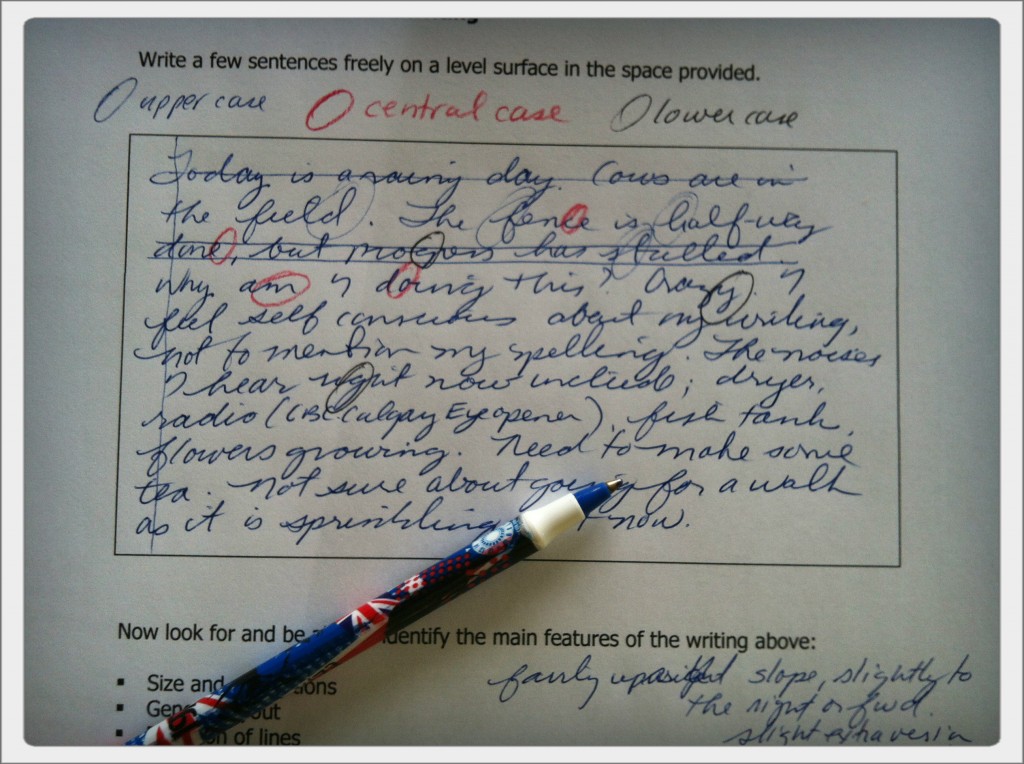 Write a few sentences freely on a level surface in the space provided.
upper case central case lower case
Today is a rainy day. Cows are in
the field. The fence is half-way
done, but progress has stalled.
Why am I doing this? Crazy. I
feel self conscious about my writing,
not to mention my spelling. The noises
I hear right now include; dryer,
radio (CBC Calgary Eyeopener), fish tank,
flowers growing. Need to make some
tea. Not sure about going for a walk
as it is sprinkling now.
Now look for and be identify the main features of the writing above:
fairly slope, slightly to
▪ Size and
the right or fwd.
▪
slight
▪ of lines